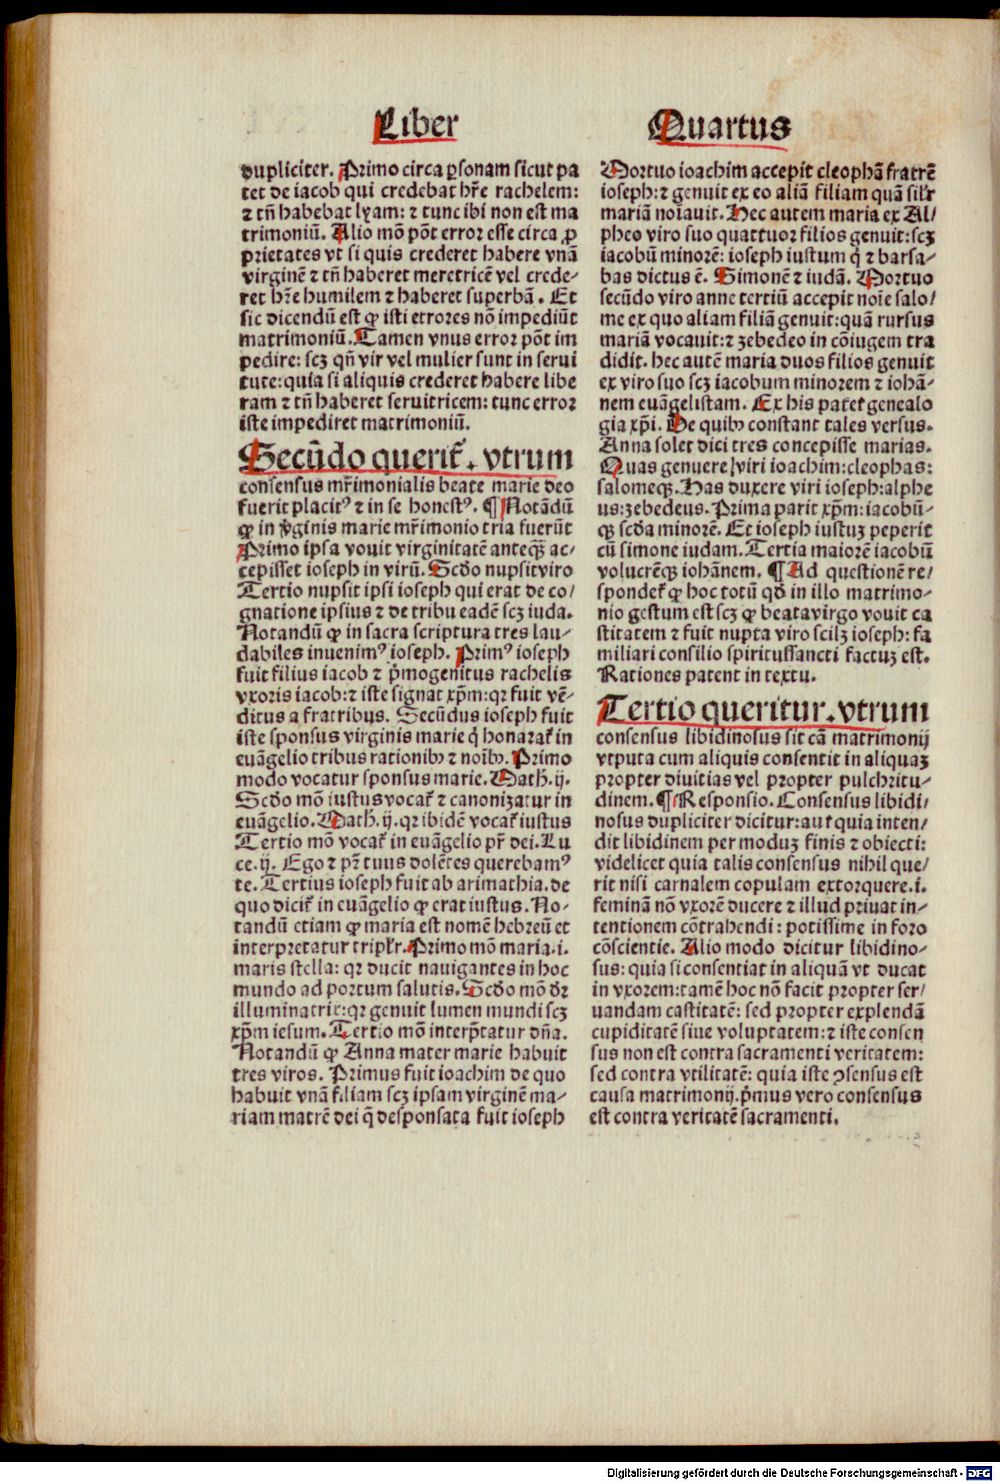 Liber Quartus
dupliciter. Primo circa ꝑsonam sicut pa
tet de iacob qui credebat hr̄e rachelem:
⁊ tn̄ habebat lyam: ⁊ tunc ibi non est ma
trimoniū. Alio mō pōt error esse circa ꝓ
prietates vt si quis crederet habere vnā
virginē ⁊ tn̄ haberet meretricē vel crede-
ret hr̄e humilem ⁊ haberet superbā. Et
sic dicendū est ꝙ isti errores nō impediūt
matrimoniū. Tamen vnus error pōt im
pedire: scꝫ qn̄ vir vel mulier sunt in serui
tute: quia si aliquis crederet habere libe
ram ⁊ tn̄ haberet seruitricem: tunc error
iste impediret matrimoniū.
Secūdo querit̄. vtrum
consensus mr̄imonialis beate marie deo
fuerit placitꝰ ⁊ in se honestꝰ. ¶ Notandū
ꝙ in v̄ginis marie mr̄imonio tria fuerūt
Primo ipsa vouit virginitatē anteqꝫ̄ ac-
cepisset ioseph in virū. Scd̄o nupsit viro
Tertio nupsit ipsi ioseph qui erat de co/
gnatione ipsius ⁊ de tribu eadē scꝫ iuda.
Notandū ꝙ in sacra scriptura tres lau-
dabiles inuenimꝰ ioseph. Primꝰ ioseph
fuit filius iacob ⁊ p̄mogenitus rachelis
vxoris iacob: ⁊ iste signat xp̄m: qꝛ fuit vē-
ditus a fratribus. Secūdus ioseph fuit
iste sponsus virginis marie q̄ honarat̄ in
euāgelio tribus rationibꝰ ⁊ noībꝰ. Primo
modo vocatur sponsus marie. Math. ij.
Scd̄o mō iustus vocat̄ ⁊ canonizatur in
euāgelio. Math. ij. qꝛ ibidē vocat̄ iustus
Tertio mō vocat̄ in euāgelio pr̄ dei. Lu
ce. ij. Ego ⁊ pr̄ tuus dolētes querebamꝰ
te. Tertius ioseph fuit ab arimathia. de
quo dicit̄ in euāgelio ꝙ erat iustus. No-
tandū etiam ꝙ maria est nomē hebreū et
interpretatur triplr̄. Primo mō maria. i.
maris stella: qꝛ ducit nauigantes in hoc
mundo ad portum salutis. Scd̄o mō dr̄
illuminatrix: qꝛ genuit lumen mundi scꝫ
xp̄m iesum. Tertio mō interp̄tatur dn̄a.
Notandū ꝙ Anna mater marie habuit
tres viros. Primus fuit ioachim de quo
habuit vnā filiam scꝫ ipsam virginē ma-
riam matrē dei q̄ desponsata fuit ioseph
Mortuo ioachim accepit cleophā fratrē
ioseph: ⁊ genuit ex eo aliā filiam quā silr̄
mariā noīauit. Hec autem maria ex Al/
pheo viro suo quattuor filios genuit: scꝫ
iacobū minorē: ioseph iustum q̇ ⁊ barsa-
bas dictus ē. Simonē ⁊ iudā. Mortuo
secūdo viro anne tertiū accepit noīe salo/
me ex quo aliam filiā genuit: quā rursus
mariā vocauit: ⁊ zebedeo in cōiugem tra
didit. hec autē maria duos filios genuit
ex viro suo scꝫ iacobum minorem ⁊ iohā-
nem euāgelistam. Ex his patet̄ genealo
gia xp̄i. De quibꝰ constant tales versus.
Anna solet dici tres concepisse marias.
Quas genuere viri ioachim: cleophas:
salomeqꝫ. Has duxere viri ioseph: alphe
us: zebedeus. Prima parit xp̄m: iacobū-
qꝫ scd̄a minorē. Et ioseph iustuꝫ peperit
cū simone iudam. Tertia maiorē iacobū
volucrēqꝫ iohānem. ¶ Ad questionē re/
spondet̄ ꝙ hoc totū qd̄ in illo matrimo-
nio gestum est scꝫ ꝙ beata virgo vouit ca
stitatem ⁊ fuit nupta viro scilꝫ ioseph: fa
miliari consilio spiritussancti factuꝫ est.
Rationes patent in textu.
Tertio queritur. vtrum
consensus libidinosus sit cā matrimonij
vtputa cum aliquis consentit in aliquaꝫ
propter diuitias vel propter pulchritu-
dinem. ¶ Responsio. Consensus libidi/
nosus dupliciter dicitur: aut quia inten/
dit libidinem per moduꝫ finis ⁊ obiecti:
videlicet quia talis consensus nihil que/
rit nisi carnalem copulam extorquere. i.
feminā nō vxorē ducere ⁊ illud priuat in-
tentionem cōtrahendi: potissime in foro
cōscientie. Alio modo dicitur libidino-
sus: quia si consentiat in aliquā vt ducat
in vxorem: tamē hoc nō facit propter ser/
uandam castitatē: sed propter explendā
cupiditatē siue voluptatem: ⁊ iste consen
sus non est contra sacramenti veritatem:
sed contra vtilitatē: quia iste ꝯsensus est
causa matrimonij. p̄mus vero consensus
est contra veritatē sacramenti.
Digitalisierung gefördert durch die Deutsche Forschungsgemeinschaft - DFG